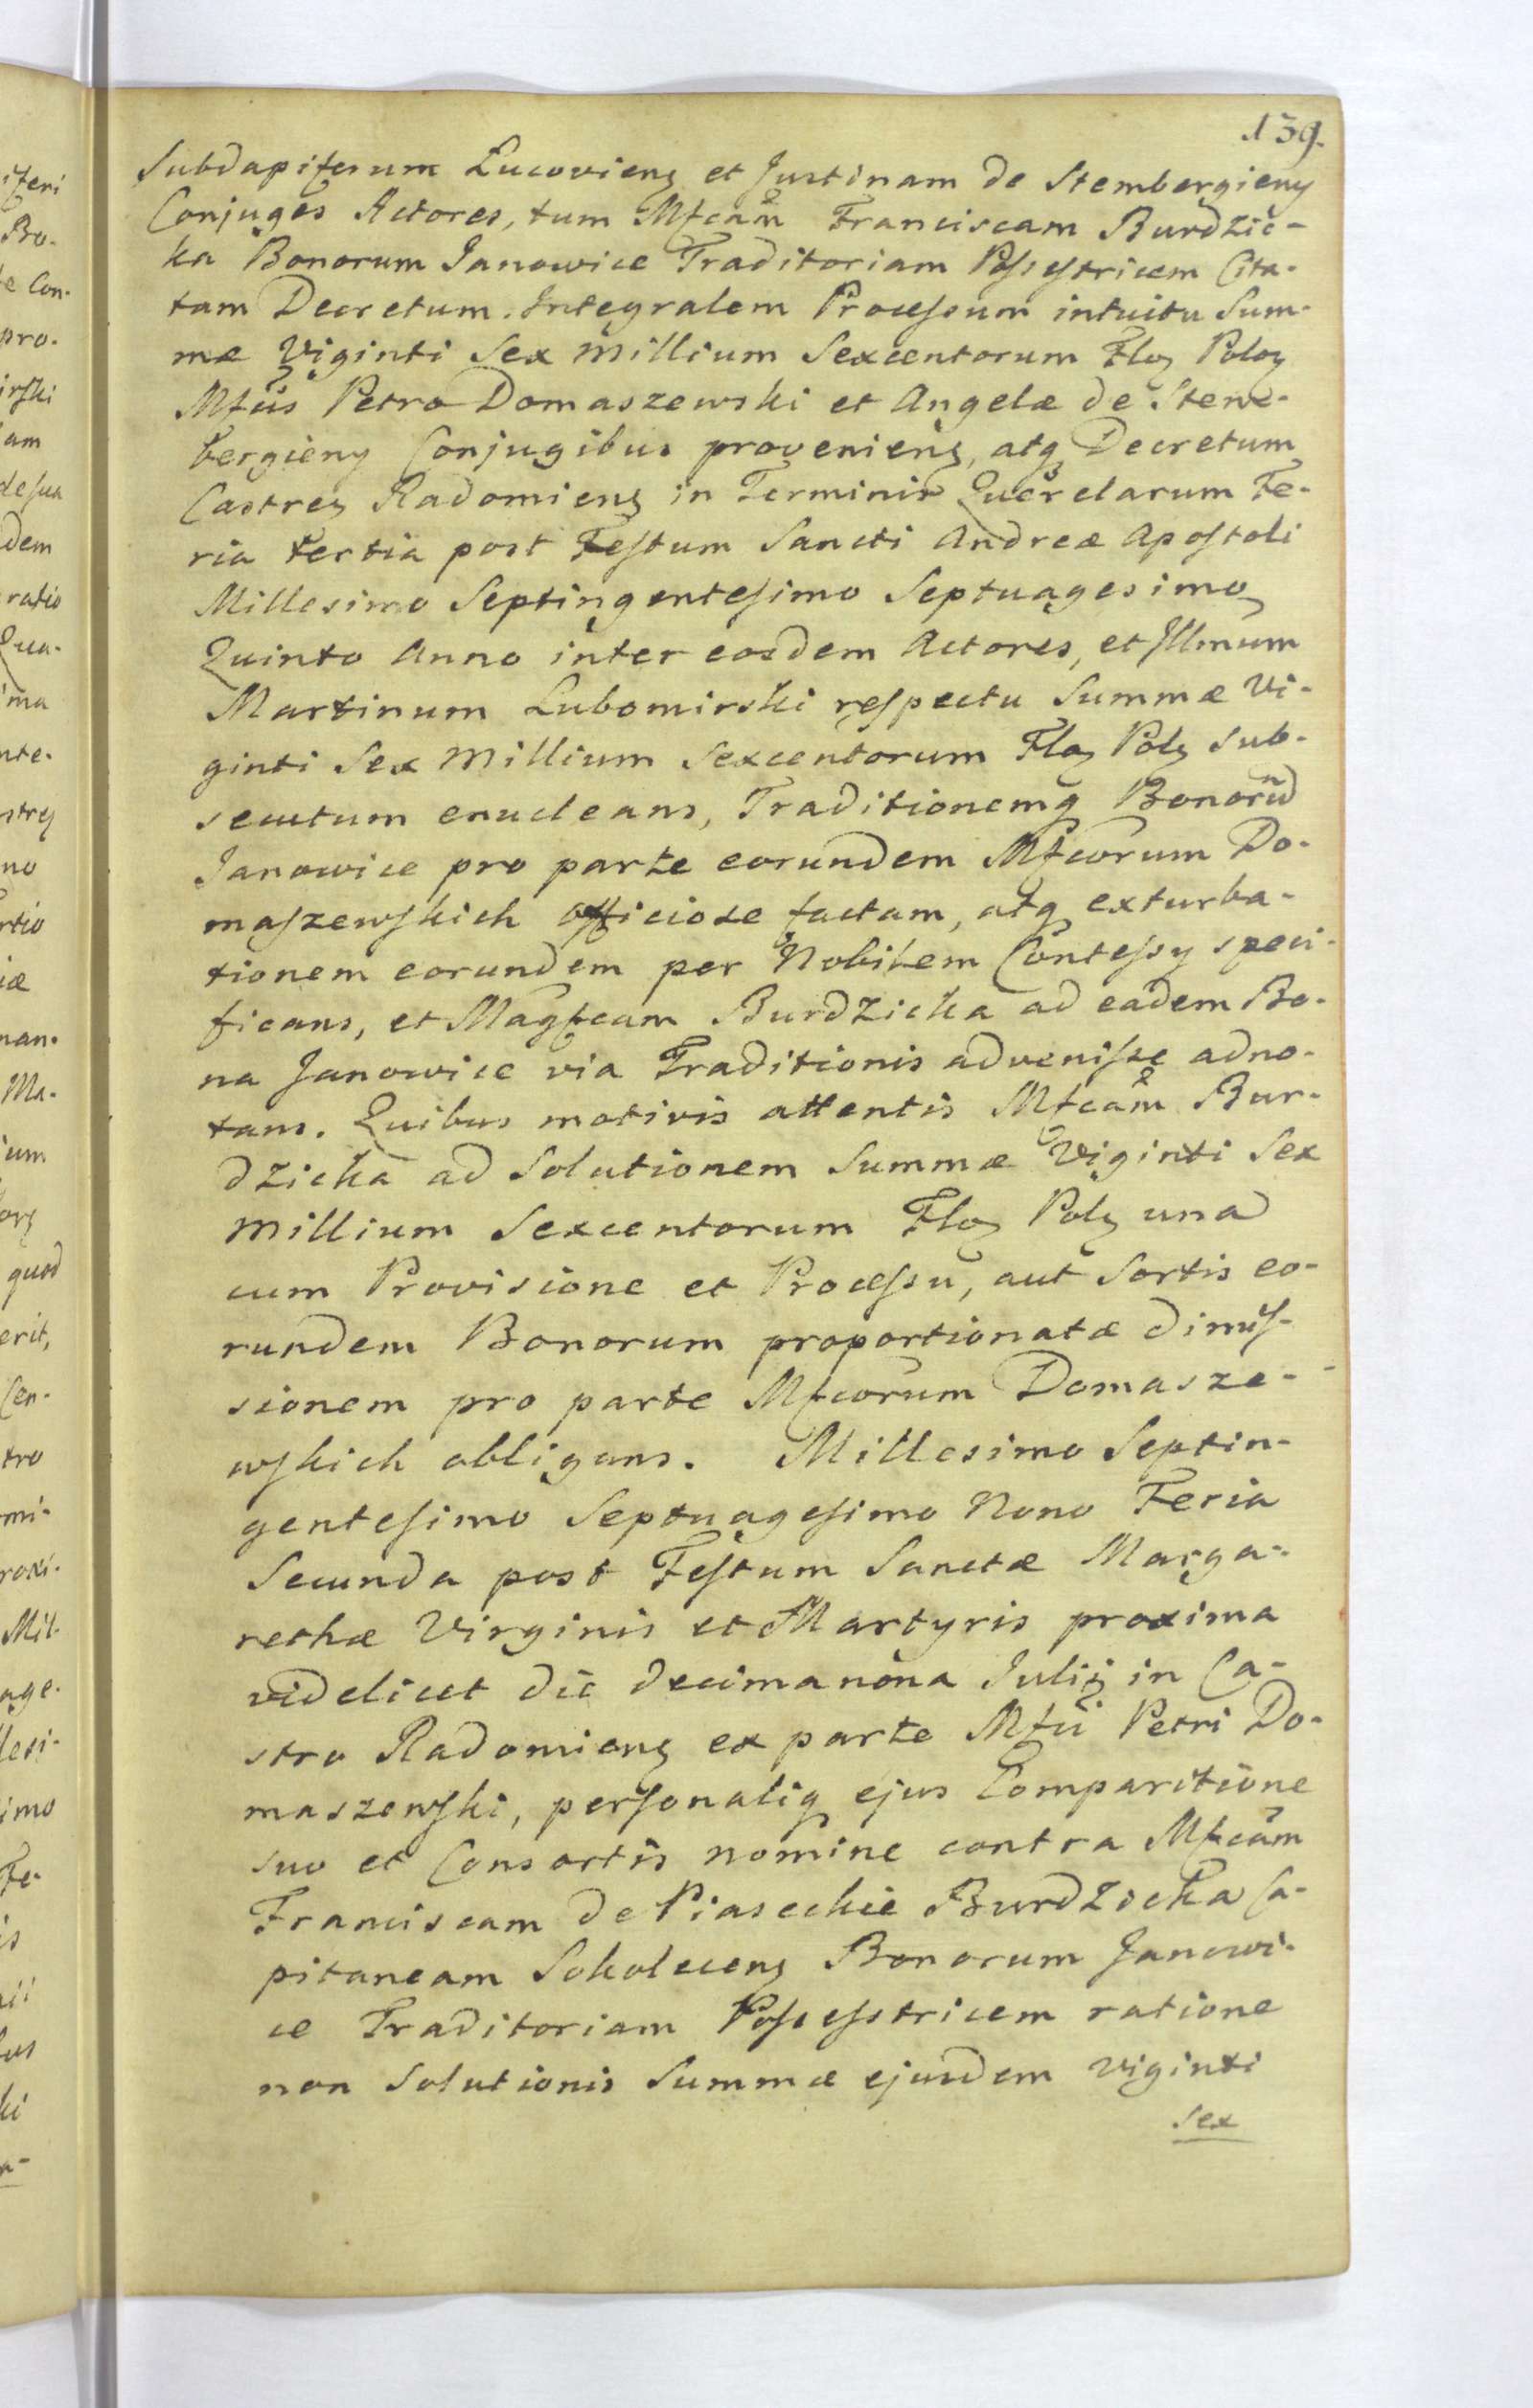 139.
Subdapiferum Lucoviens et Justinam de Stembergieny
Conjuges Actores, tum Mfcam Franciscam Burdzic-
ka Bonorum Janowice Traditoriam Possestricem Cita-
tam Decretum. Integralem Processum intuitu Sum-
mæ Viginti Sex Millium Sexcentorum Flo Polo
Mfcis Petro Domaszewski et Angelæ de Stem-
bergieny Conjugibus proveniens, atq Decretum
Castren Radomiens in Terminis Querelarum Fe-
ria tertia post Festum Sancti Andreæ Apostoli
Millesimo Septingentesimo Septuagesimo
Quinto Anno inter eosdem Actores, et Illmum
Martinum Lubomirski respectu Summæ Vi-
ginti Sex Millium Sexcentorum Flo Pol sub-
secutum enucleans, Traditionemq Bonorū
Janowice pro parte eorundem Mfcorum Do-
maszewskich officiose factam, atq exturba-
tionem eorundem per Nobilem Contessy speci-
ficans, et Magfcam Burdzicka ad eadem Bo-
na Janowice via Traditionis advenisse adno-
tans. Quibus motivis attentis Mfcam Bur-
dzicka ad Solutionem Summæ Viginti Sex
Millium Sexcentorum Flo Pol una
cum Provisione et Processu, aut Sortis eo-
rundem Bonorum proportionatæ dimis-
sionem pro parte Mfcorum Domasze-
wskich obligans. Millesimo Septin-
gentesimo Septuagesimo Nono Feria
Secunda post Festum Sanctæ Marga-
rethæ Virginis et Martyris proxima
videlicet die decima nona Julii in Ca-
stro Radomiens ex parte Mfci Petri Do-
maszewski, personaliq ejus Comparitione
suo et Consortis nomine contra Mfcam
Franciscam de Piaseckie Burdzicka Ca-
pitaneam Sokolecens Bonorum Janowi-
ce Traditoriam Possestricem ratione
non Solutionis Summæ ejusdem Viginti
Sex